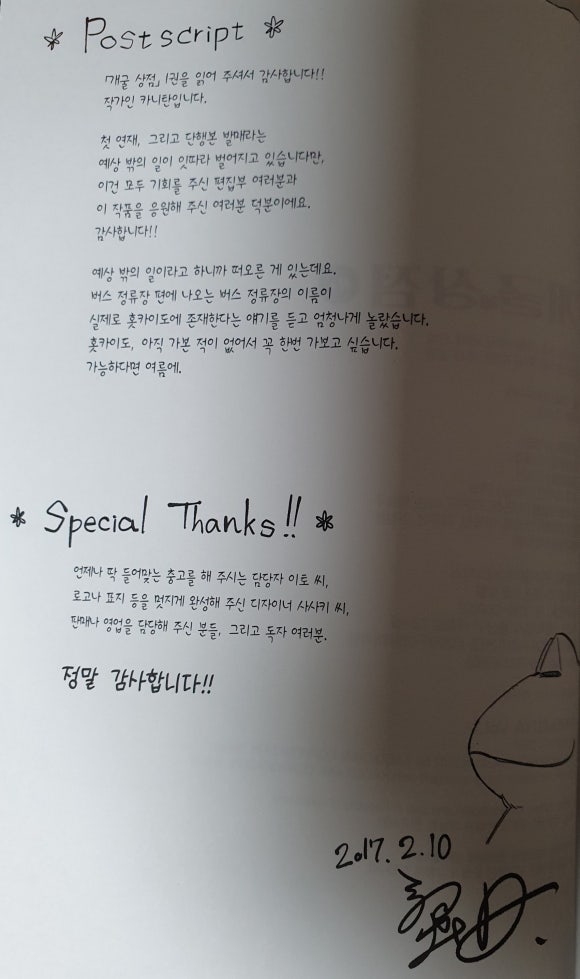 * Postscript *
「개굴 상점」 1권을 읽어 주셔서 감사합니다!!
작가인 카니탄입니다.
첫 연재, 그리고 단행본 발매라는
예상 밖의 일이 잇따라 벌어지고 있습니다만,
이건 모두 기회를 주신 편집부 여러분과
이 작품을 응원해 주신 여러분 덕분이에요.
감사합니다!!
예상 밖의 일이라고 하니까 떠오른 게 있는데요.
버스 정류장 편에 나오는 버스 정류장의 이름이
실제로 홋카이도에 존재한다는 얘기를 듣고 엄청나게 놀랐습니다.
홋카이도, 아직 가본 적이 없어서 꼭 한번 가보고 싶습니다.
가능하다면 여름에.
* Special Thanks!! *
언제나 딱 들어맞는 충고를 해 주시는 담당자 이토 씨,
로고나 표지 등을 멋지게 완성해 주신 디자이너 사사키 씨,
판매나 영업을 담당해 주신 분들, 그리고 독자 여러분.
정말 감사합니다!!
2017. 2. 10